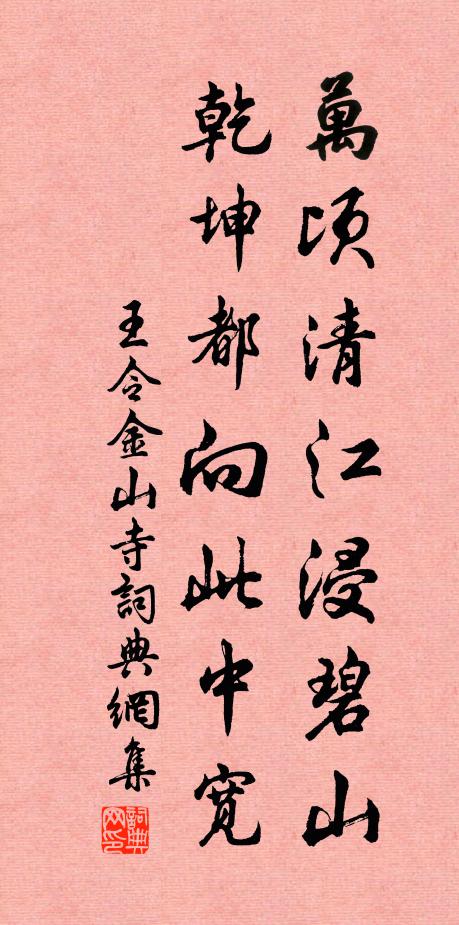 萬頃清江浸碧山
乾坤都向此中寬
王令金山寺詞典網集
詞典网印